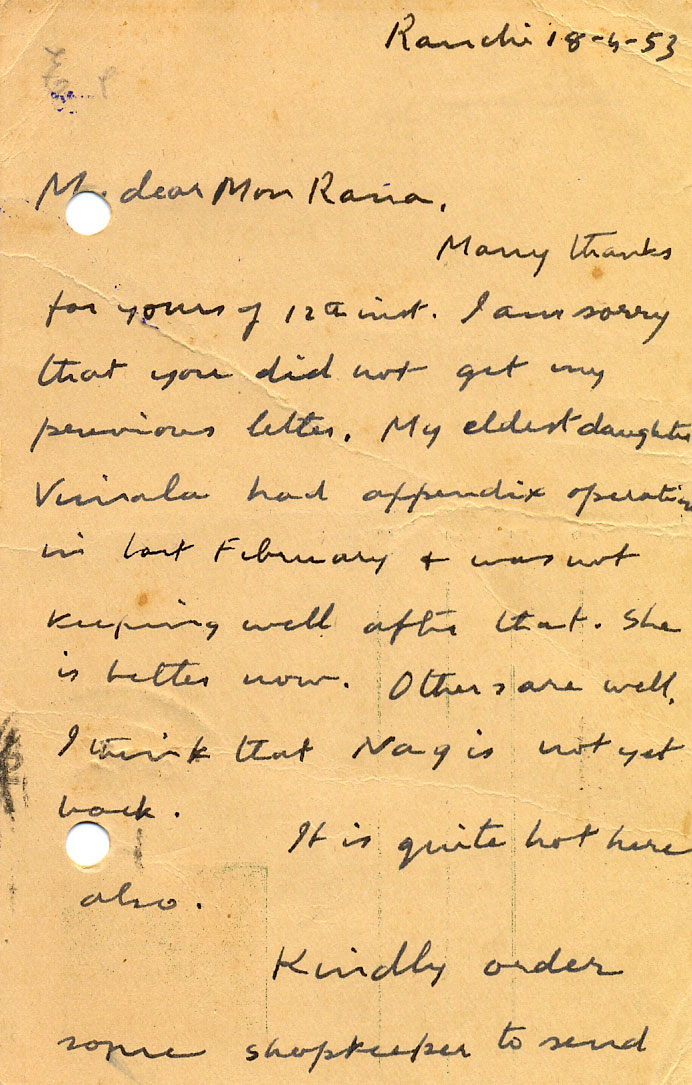 Ranchi 18-4-53
My dear Mon Rana,
Many thanks
for yours of 12th inst. I am sorry
that you did not get my
previous letter. My eldest daughter
Vimala had appendix operation
in last February & was not
keeping well after that. She
is better now. Others are well.
I think that Nag is not yet
back.
It is quite hot here
also.
Kindly order
some shopkeeper to send